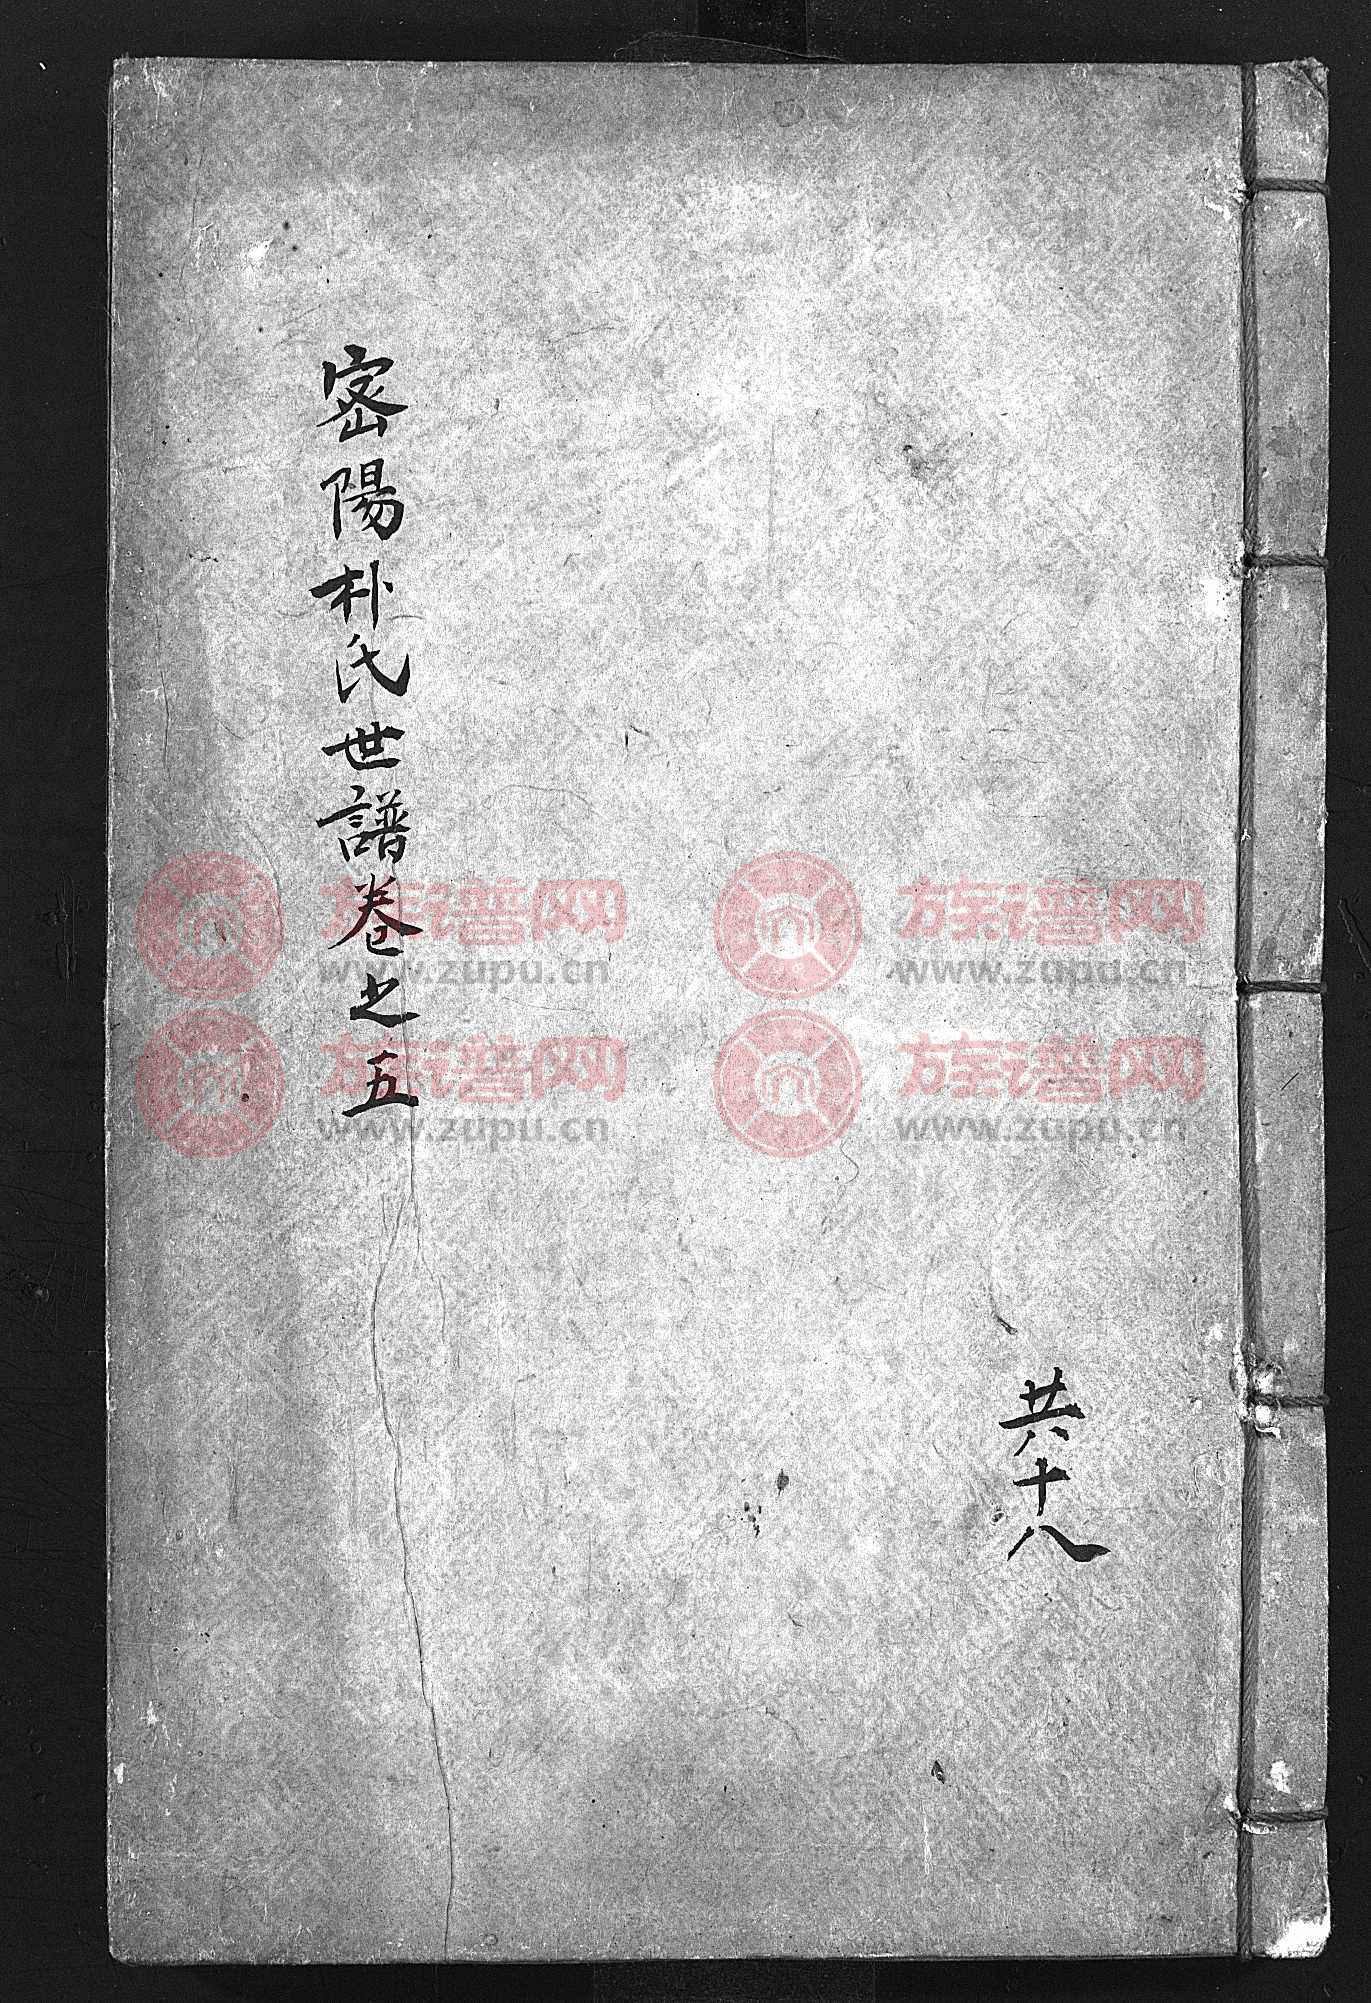 共十八
密陽朴氏世譜卷之五
族谱网
www.zupu.cn
族谱网
www.zupu.cn
族谱网
www.zupu.cn
族谱网
www.zupu.cn